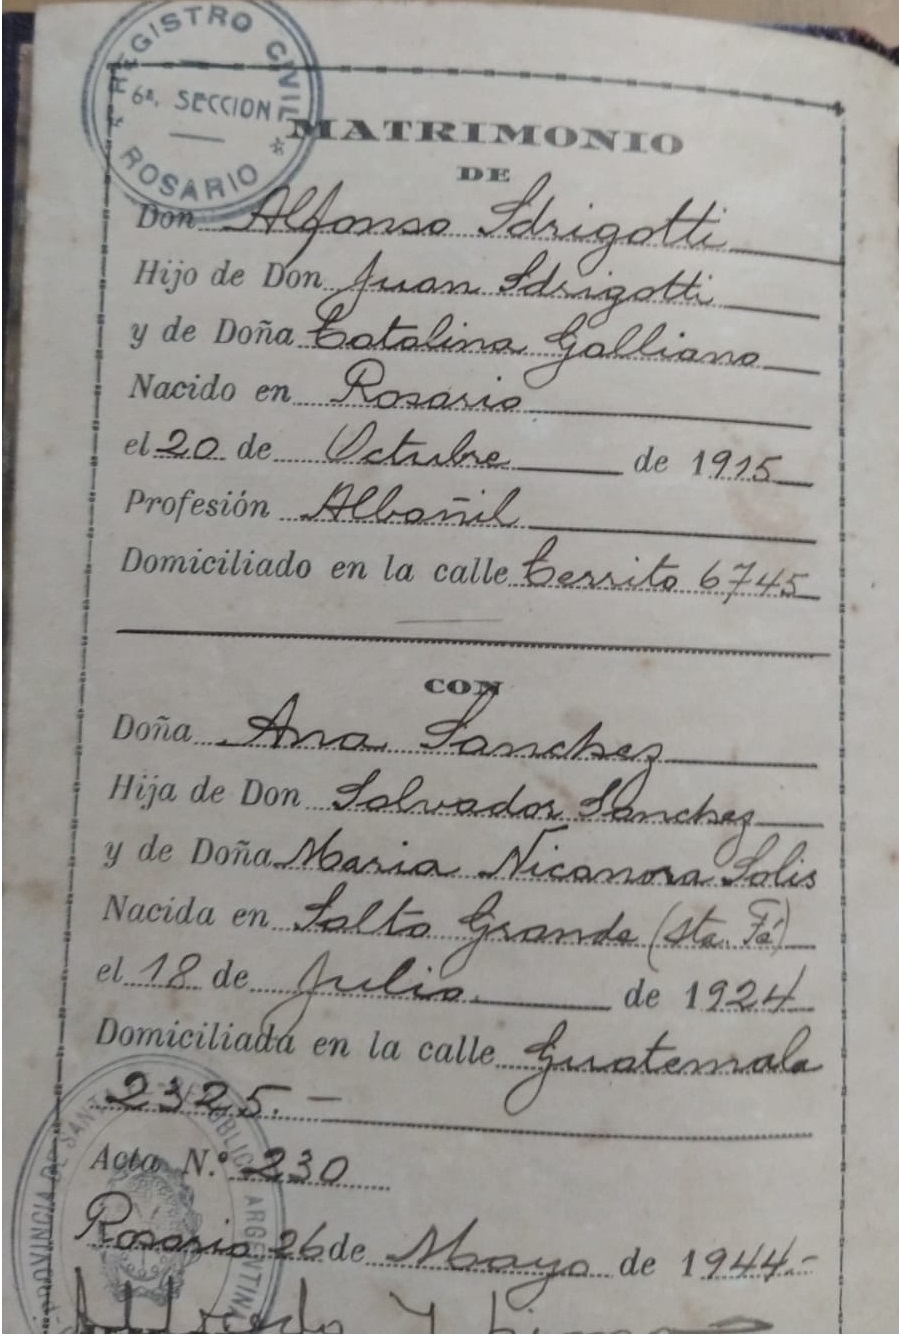 REGISTRO CIVIL
6ª. SECCION
ROSARIO
MATRIMONIO
DE
Don Alfonso Idrigotti
Hijo de Don Juan Idrigotti
y de Doña Catalina Galliano
Nacido en Rosario
el 20 de Octubre de 1915
Profesión Albañil
Domiciliado en la calle Cerrito 6745
CON
Doña Ana Sanchez
Hija de Don Salvador Sanchez
y de Doña Maria Nicanora Solis
Nacida en Salto Grande (Sta. Fé)
el 18 de Julio de 1924
Domiciliada en la calle Guatemala
2325.-
Acta N.º 230
Rosario 26 de Mayo de 1944.-
PROVINCIA DE SANT
REPUBLIC ARGENTINA
Alfredo